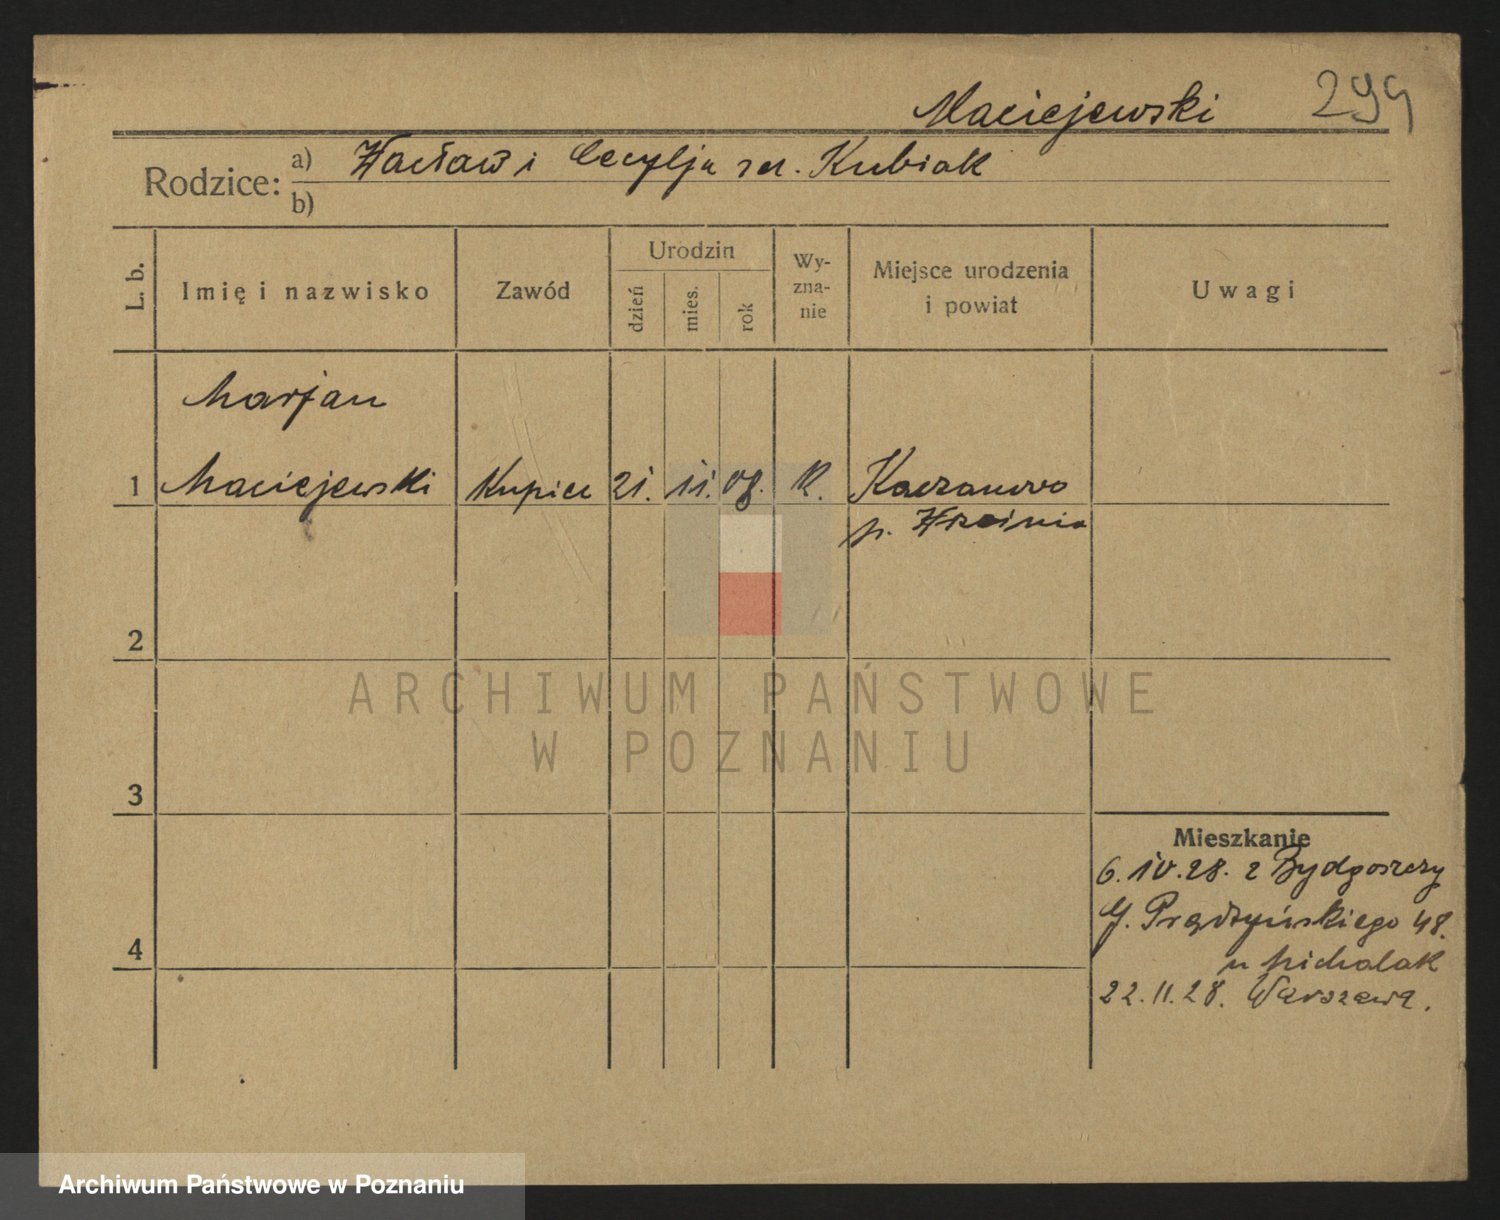 Maciejewski 299
Rodzice: a) Wacław i Cecylja z d. Kubiak
b)
L. b. Imię i nazwisko Zawód Urodzin dzień mies. rok Wy-zna-nie Miejsce urodzenia i powiat Uwagi
Marjan
1 Maciejewski Kupiec 21. 11. 08. R. Kaczanowo
p. Września
2
ARCHIWUM PAŃSTWOWE
W POZNANIU
3
Mieszkanie
6. 10. 28. z Bydgoszczy
G. Prądzyńskiego 48.
4
u Michalak
22. 11. 28. Warszawa.
Archiwum Państwowe w Poznaniu